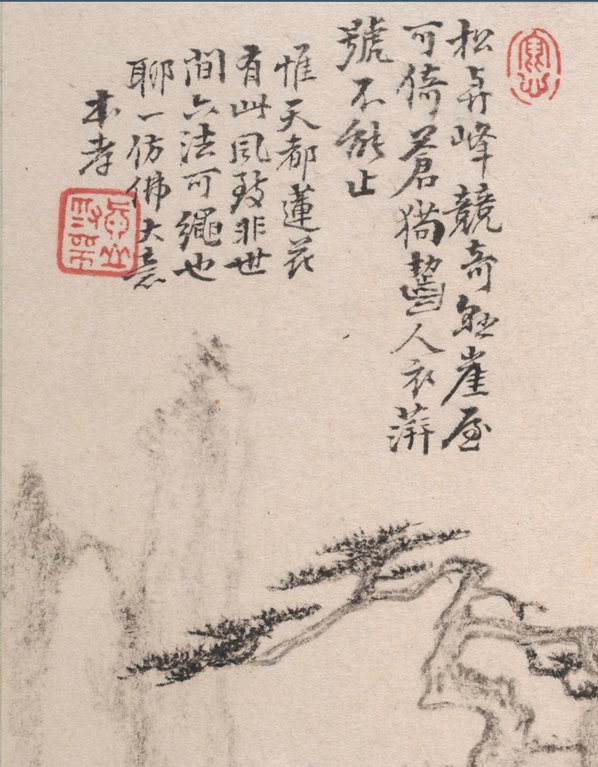 松峰競奇崖屋
可倚蒼齧人衣
號不能止
惟天都蓮花
有此風致非世
間六法可繩也
聊一仿佛大意
本孝